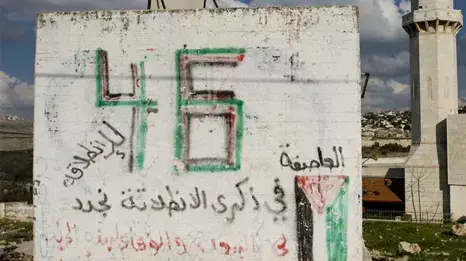 46
للإنطلاقة
العاصفة
في ذكرى الانطلاقة نجدد